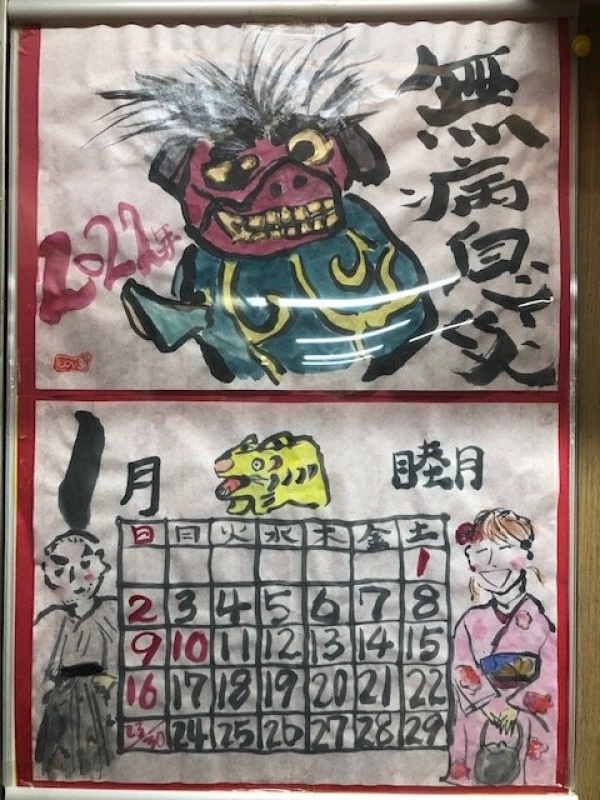 無病息災
2022年
1月
睦月
日 月 火 水 木 金 土
1
2 3 4 5 6 7 8
9 10 11 12 13 14 15
16 17 18 19 20 21 22
23/30 24 25 26 27 28 29